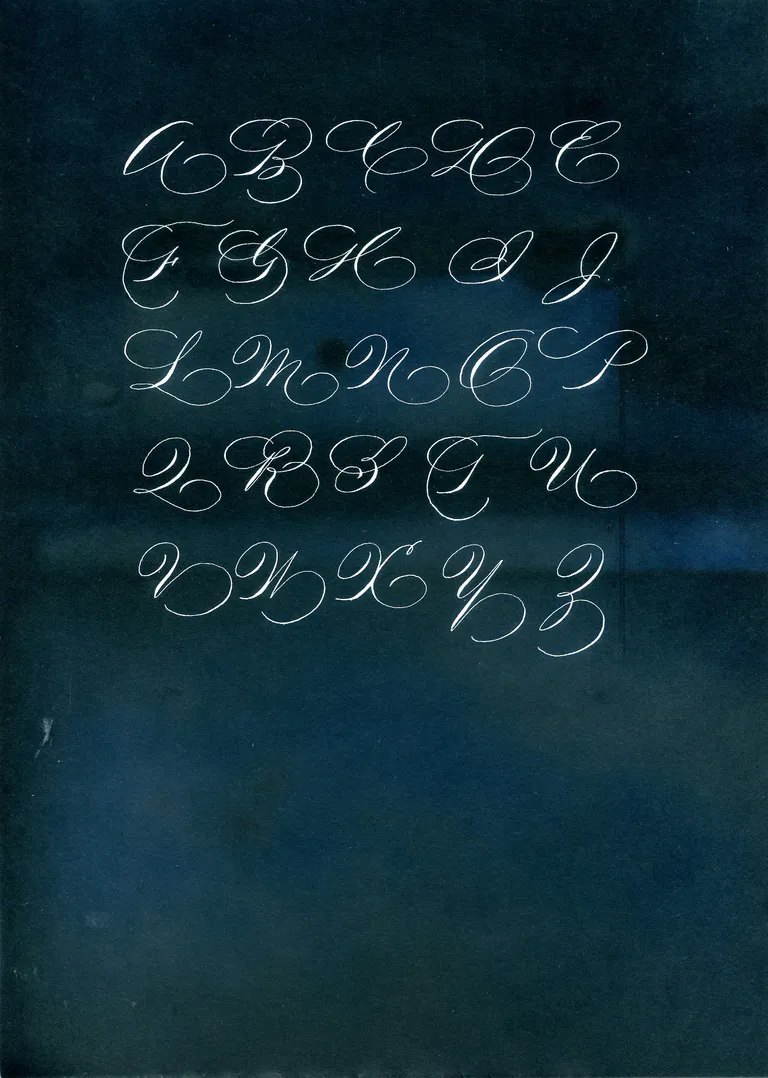 A B C D E
F G H I J
L M N O P
Q R S T U
V W X Y Z